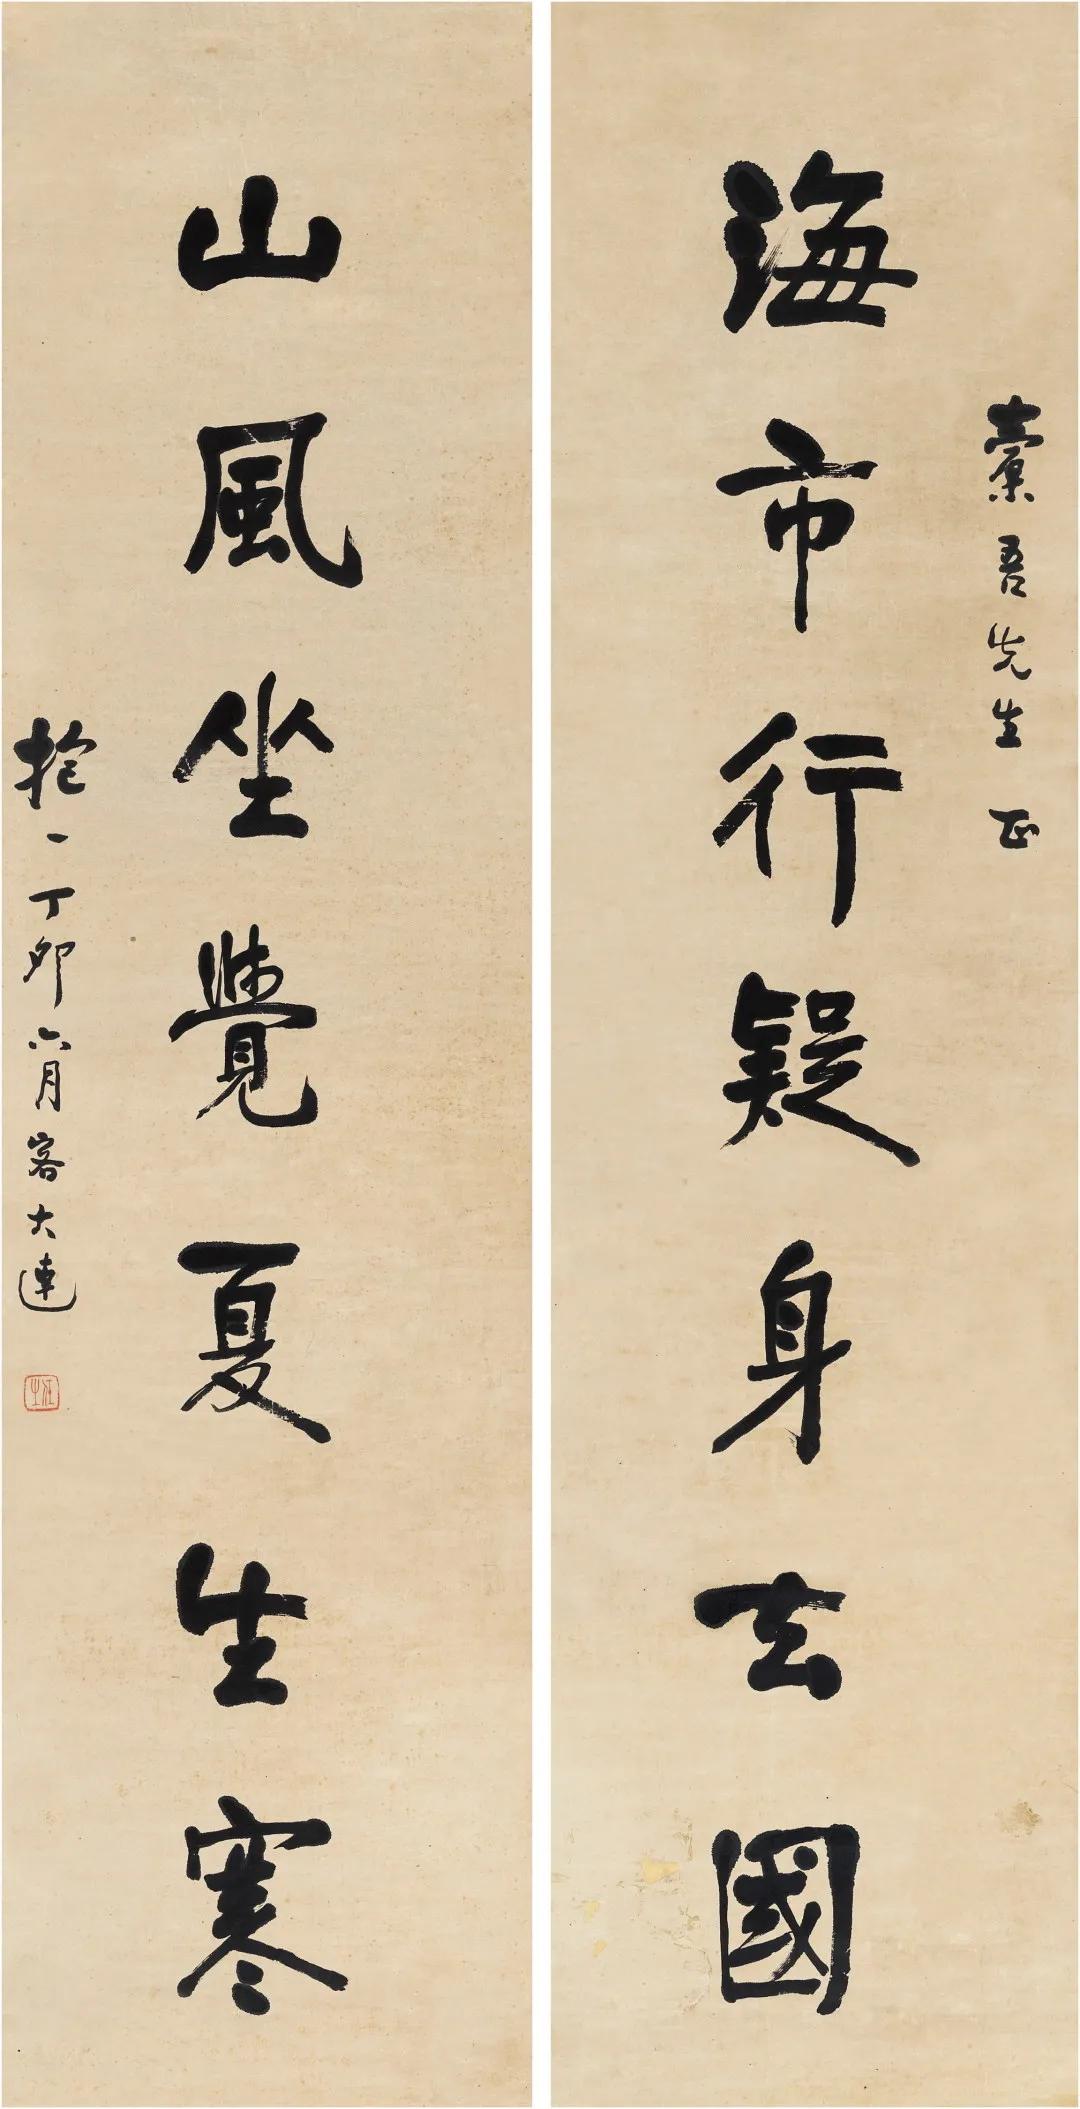 海市行疑身去國
藁吾先生正
山風坐覺夏生寒
抱一丁卯六月客大連